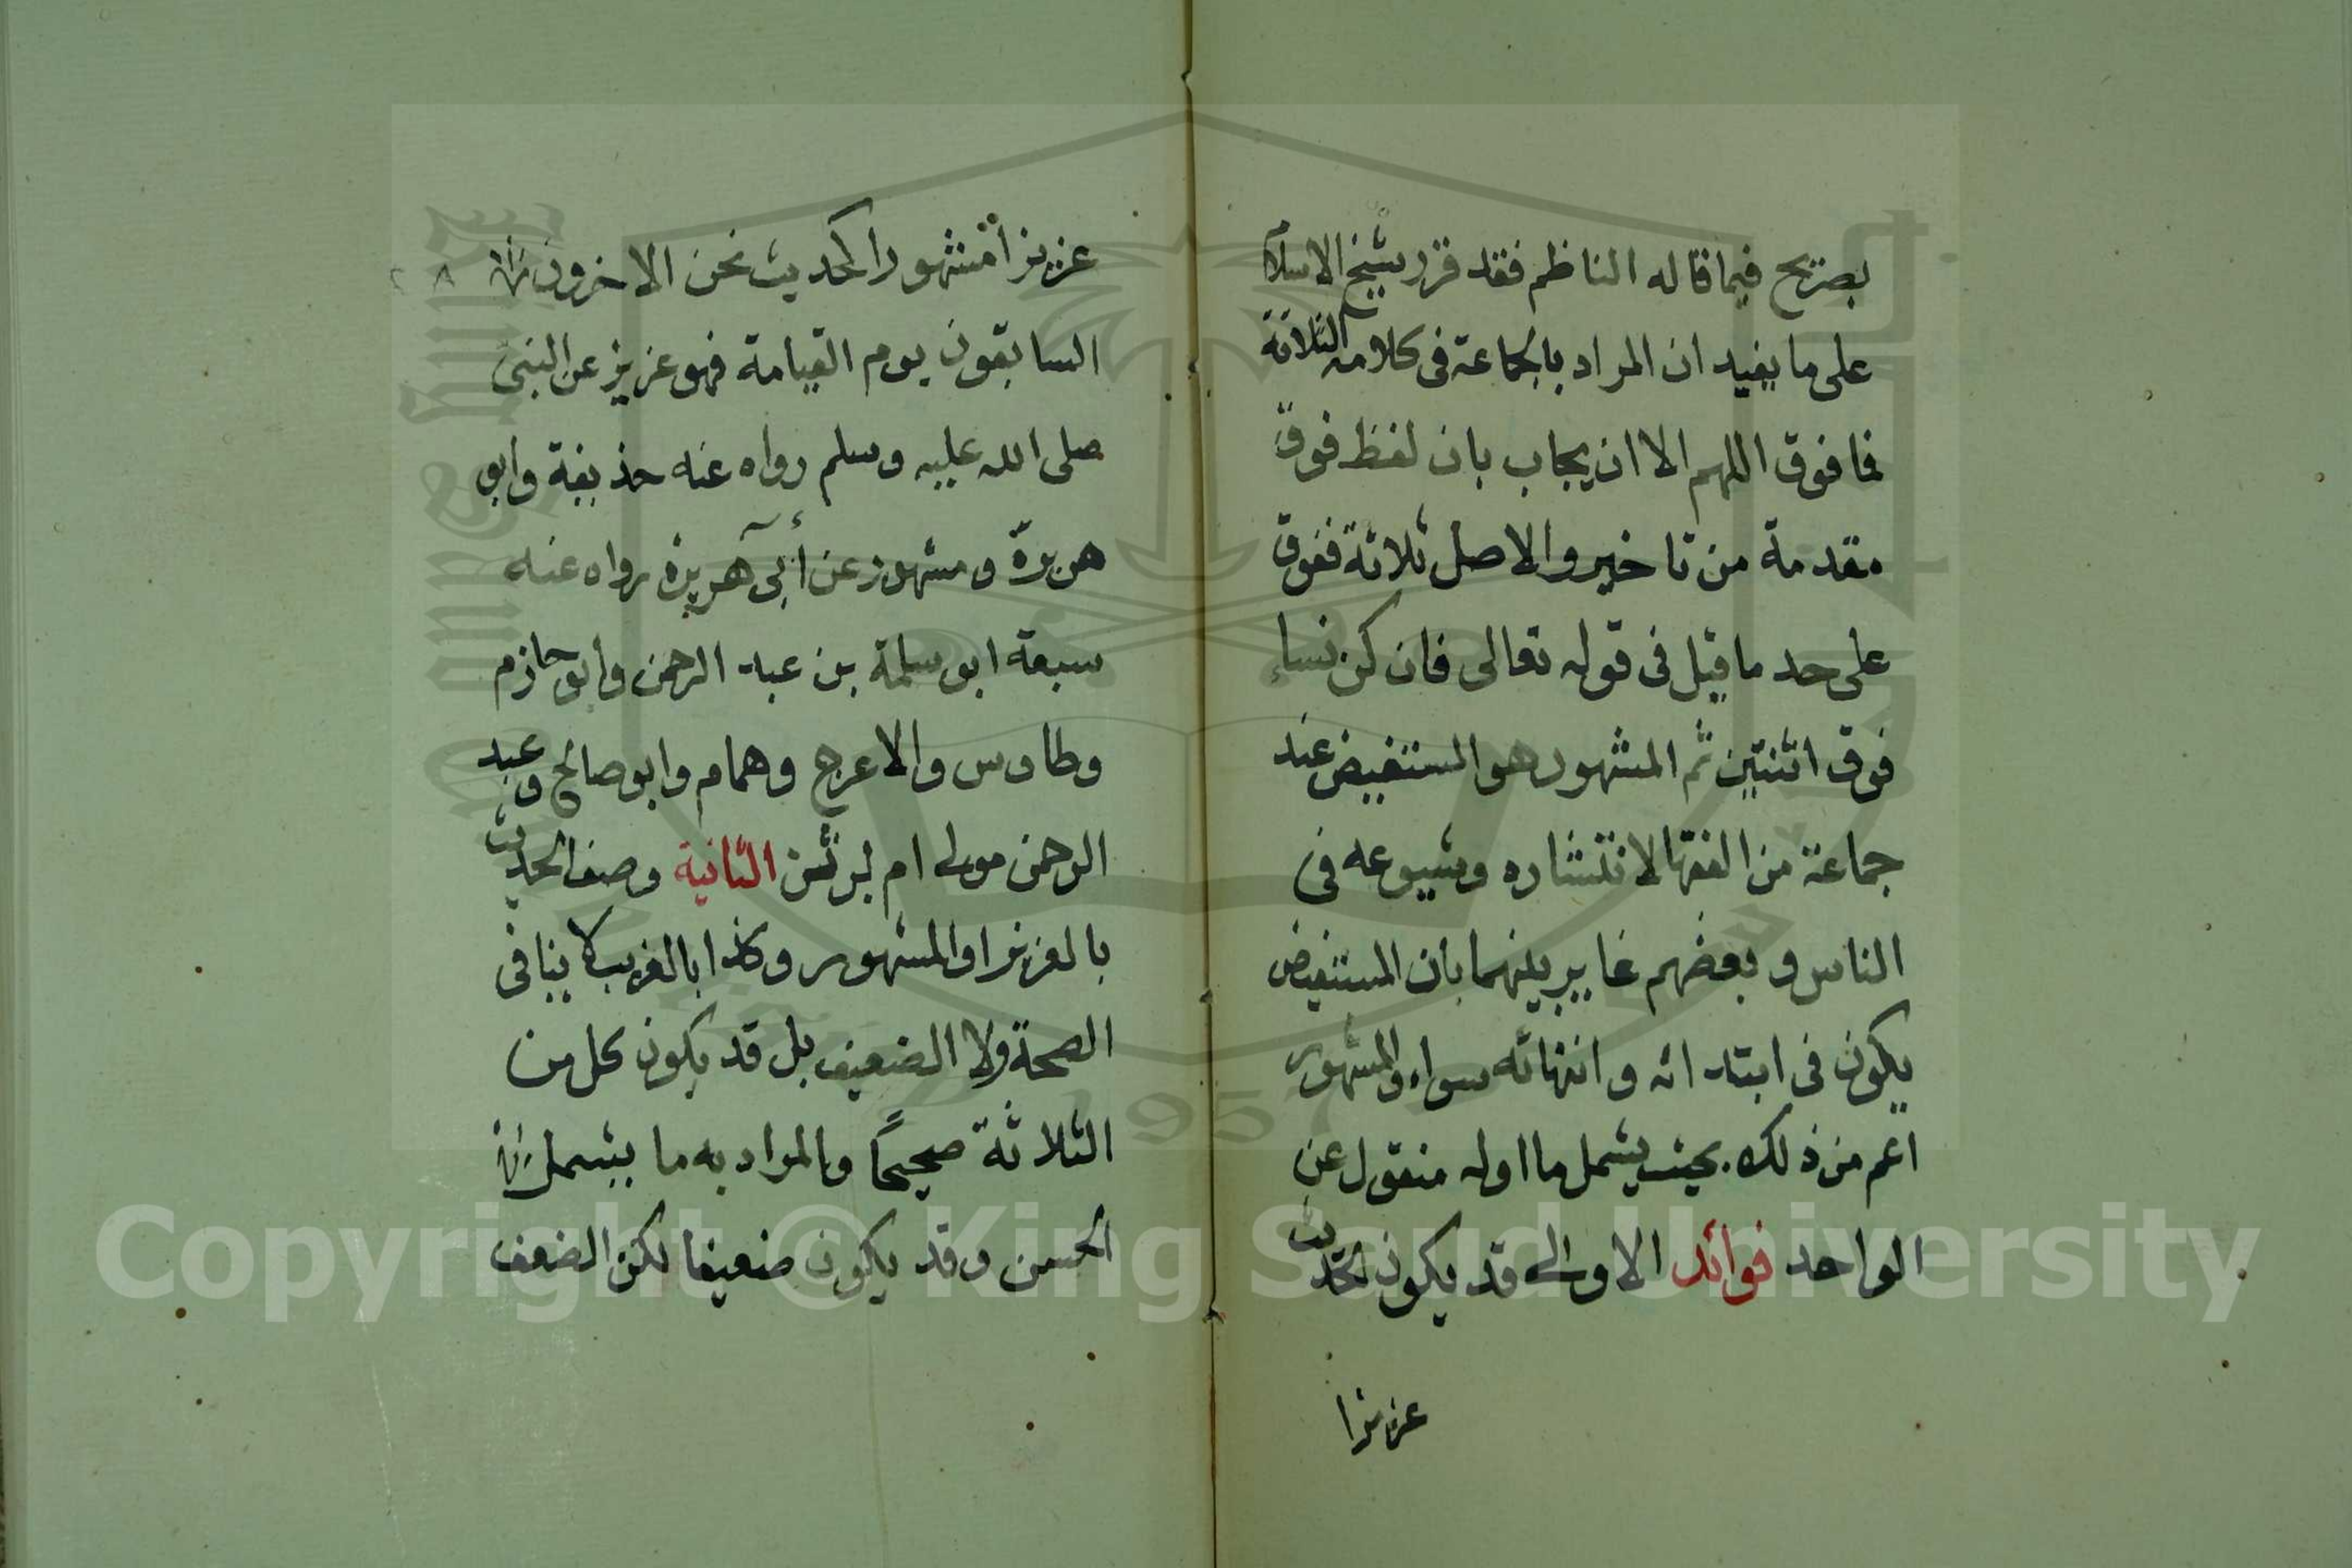 بصريح فيما قاله الناظم فقد قرر شيخ الاسلام
على ما يفيد ان المراد بالجماعة في كلامه الثلاثة
فما فوق اللهم الا ان يجاب بان لفظ فوق
مقدمة من تاخير والاصل ثلاثة ففوق
على حد ما قيل في قوله تعالى فان كن نساء
فوق اثنتين ثم المشهور هو المستفيض عند
جماعة من الفقها لانتشاره وشيوعه في
الناس وبعضهم غاير بينهما بان المستفيض
يكون في ابتدائه وانتهائه سواء والمشهور
اعم من ذلك بحيث يشمل ما اوله منقول عن
الواحد فوائد الاولى قد يكون الحديث
عزيزا
عزيزا مشهورا كحديث نحن الاخرون
السابقون يوم القيامة فهو عزيز عن النبي
صلى الله عليه وسلم رواه عنه حذيفة وابو
هريرة ومشهور عن أبي هريرة رواه عنه
سبعة ابو سلمة بن عبد الرحمن وابو حازم
وطاوس والاعرج وهمام وابو صالح وعبد
الرحمن مولى ام برثن الثانية وصف الحديث
بالعزيز او المشهور وكذا بالغريب لا ينافي
الصحة ولا الضعيف بل قد يكون كل من
الثلاثة صحيحًا والمراد به ما يشمل
الحسن وقد يكون ضعيفا لكن الضعف
Copyright © King Saud University
1957